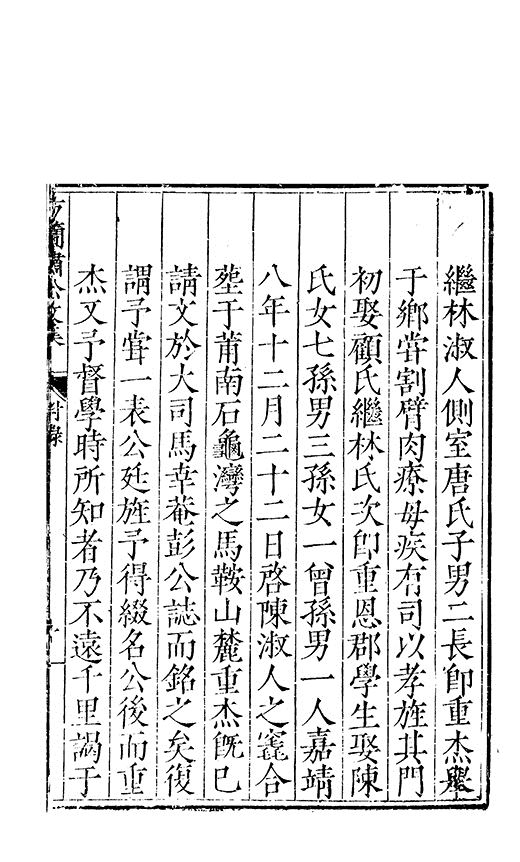 繼林淑人側室唐氏子男二長卽重杰舉
于鄉甞割臂肉療母疾有司以孝旌其門
初娶顧氏繼林氏次卽重恩郡學生娶陳
氏女七孫男三孫女一曾孫男一人嘉靖
八年十二月二十二日啓陳淑人之竁合
塟于莆南石龜灣之馬鞍山麓重杰旣已
請文於大司馬幸菴彭公誌而銘之矣復
謂予甞一表公廷旌予得綴名公後而重
杰又予督學時所知者乃不遠千里謁于
方簡肅公文集
附錄